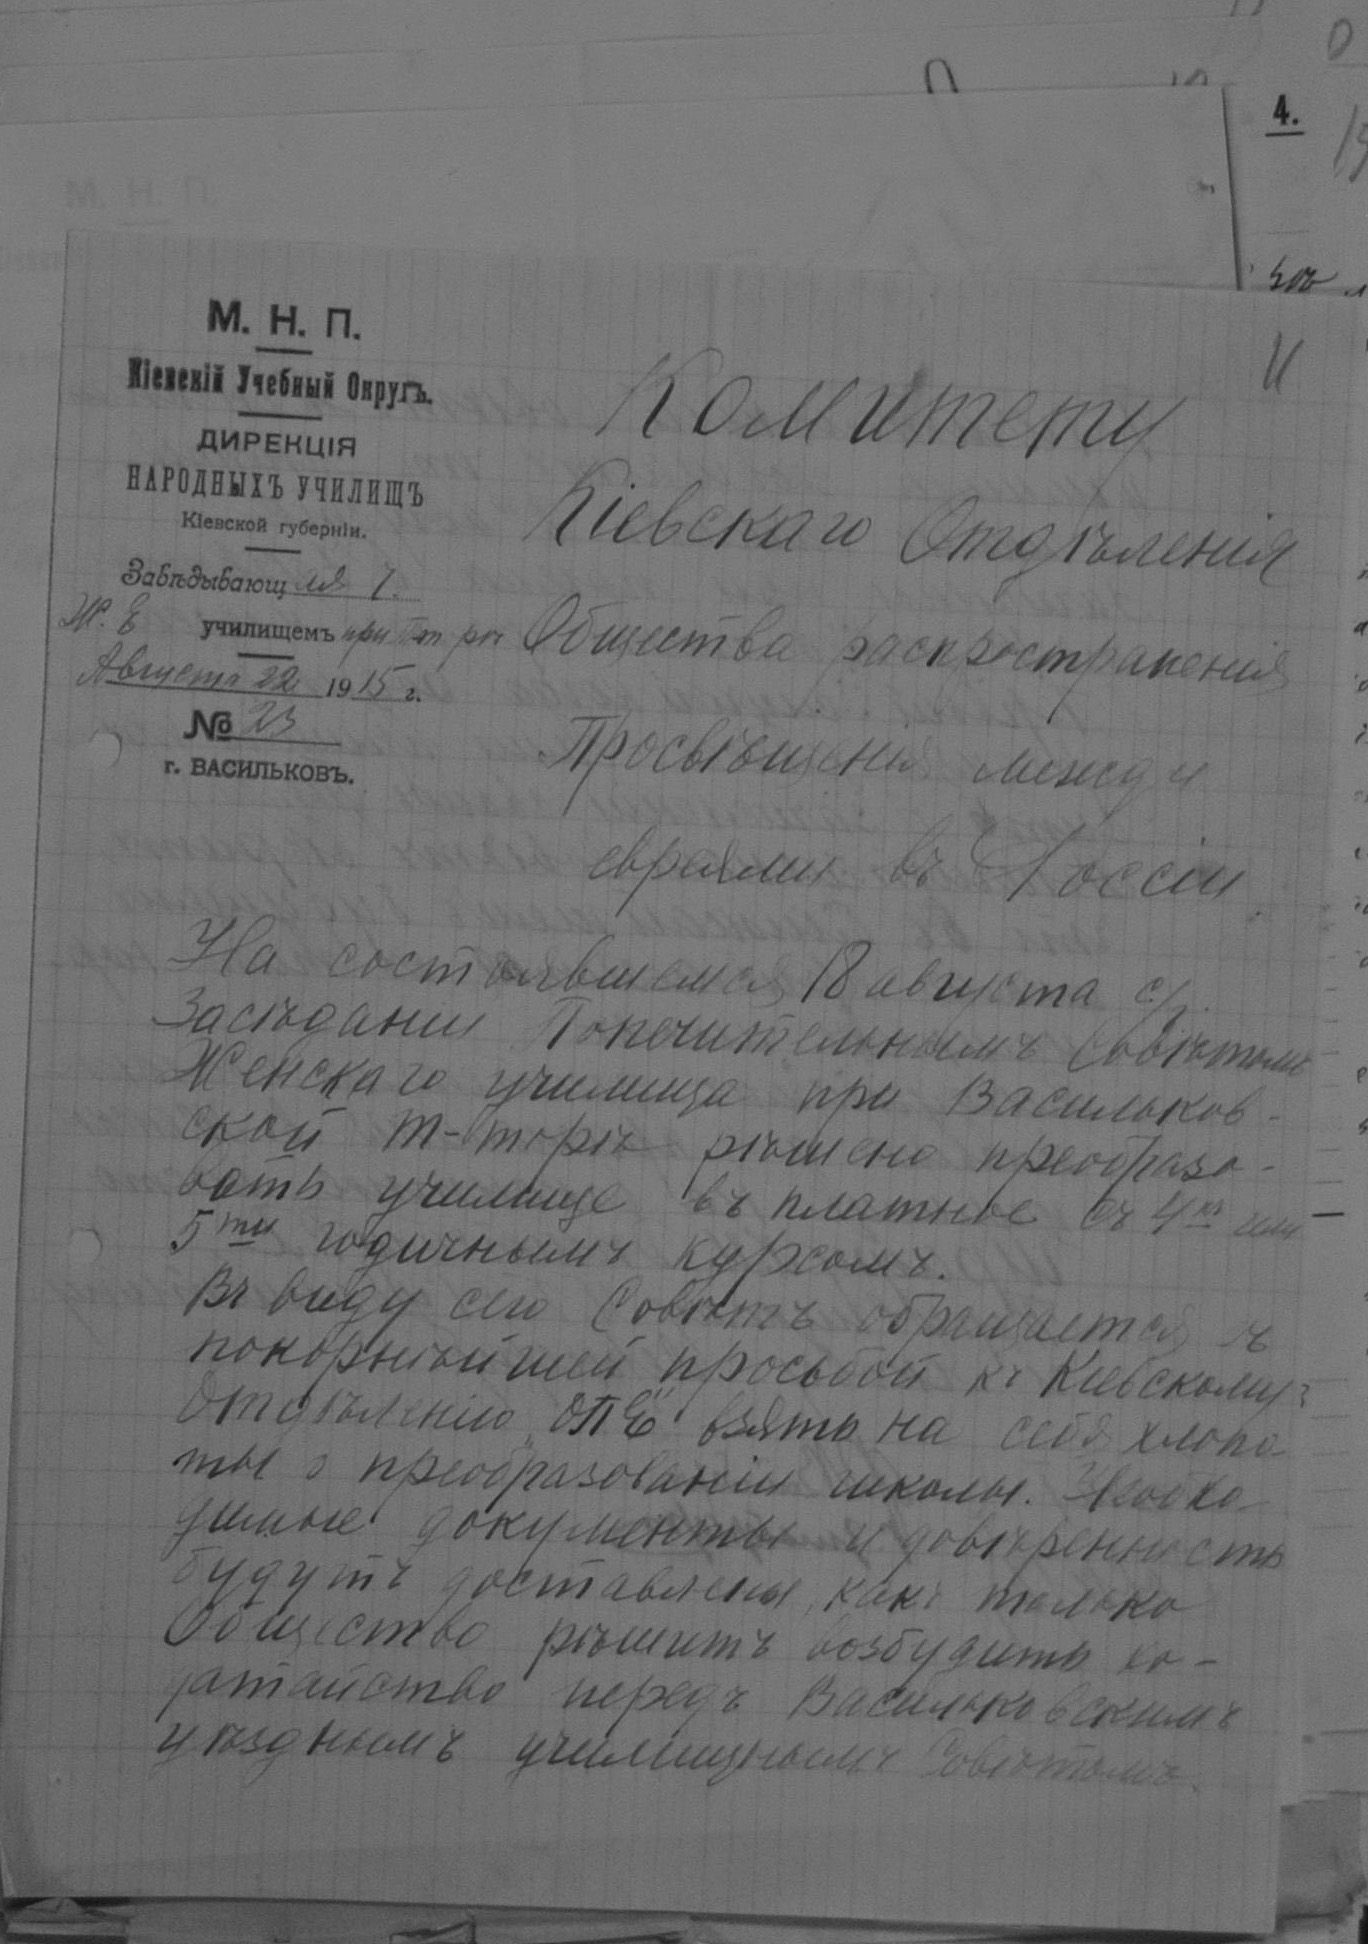 4.
М. Н. П.
Кіевскій Учебный Округъ.
ДИРЕКЦІЯ
НАРОДНЫХЪ УЧИЛИЩЪ
Кіевской губерніи.
Завѣдывающ ая 1.
Ж. Е училищемъ при
Августа 22 1915 г.
№ 23
г. ВАСИЛЬКОВЪ.
Комитету
Кіевскаго Отдѣленія
Общества распространенія
Просвѣщенія между
евреями въ Россіи.
На состоявшемся 18 августа с/г.
Засѣданіи Попечительнымъ Совѣтомъ
Женскаго училища при Васильков-
ской Т-торѣ рѣшено преобразо-
вать училище въ платное съ 4хъ или
5ти годичнымъ курсомъ.
Въ виду сего Совѣтъ обращается съ
покорнѣйшей просьбой къ Кіевскому
Отдѣленію "ОПЕ" взять на себя хлопо
ты о преобразованіи школы. Необхо-
димые документы и довѣренность
будутъ доставлены, какъ только
Общество рѣшитъ возбудить хо-
датайство передъ Васильковскимъ
уѣзднымъ училищнымъ Совѣтомъ.